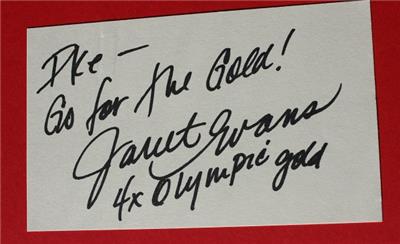 Ike —
Go for the Gold!
Janet Evans
4x Olympic gold